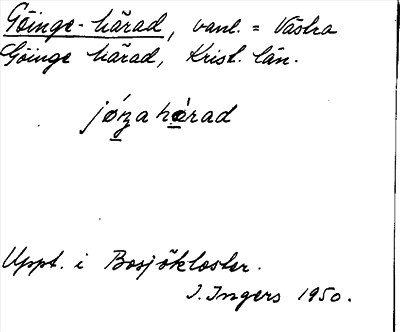 Göinge-härad, vanl. = Västra
Göinge härad, Krist. län.
jóŋa hǽrad
Uppt. i Bosjökloster.
I. Ingers 1950.